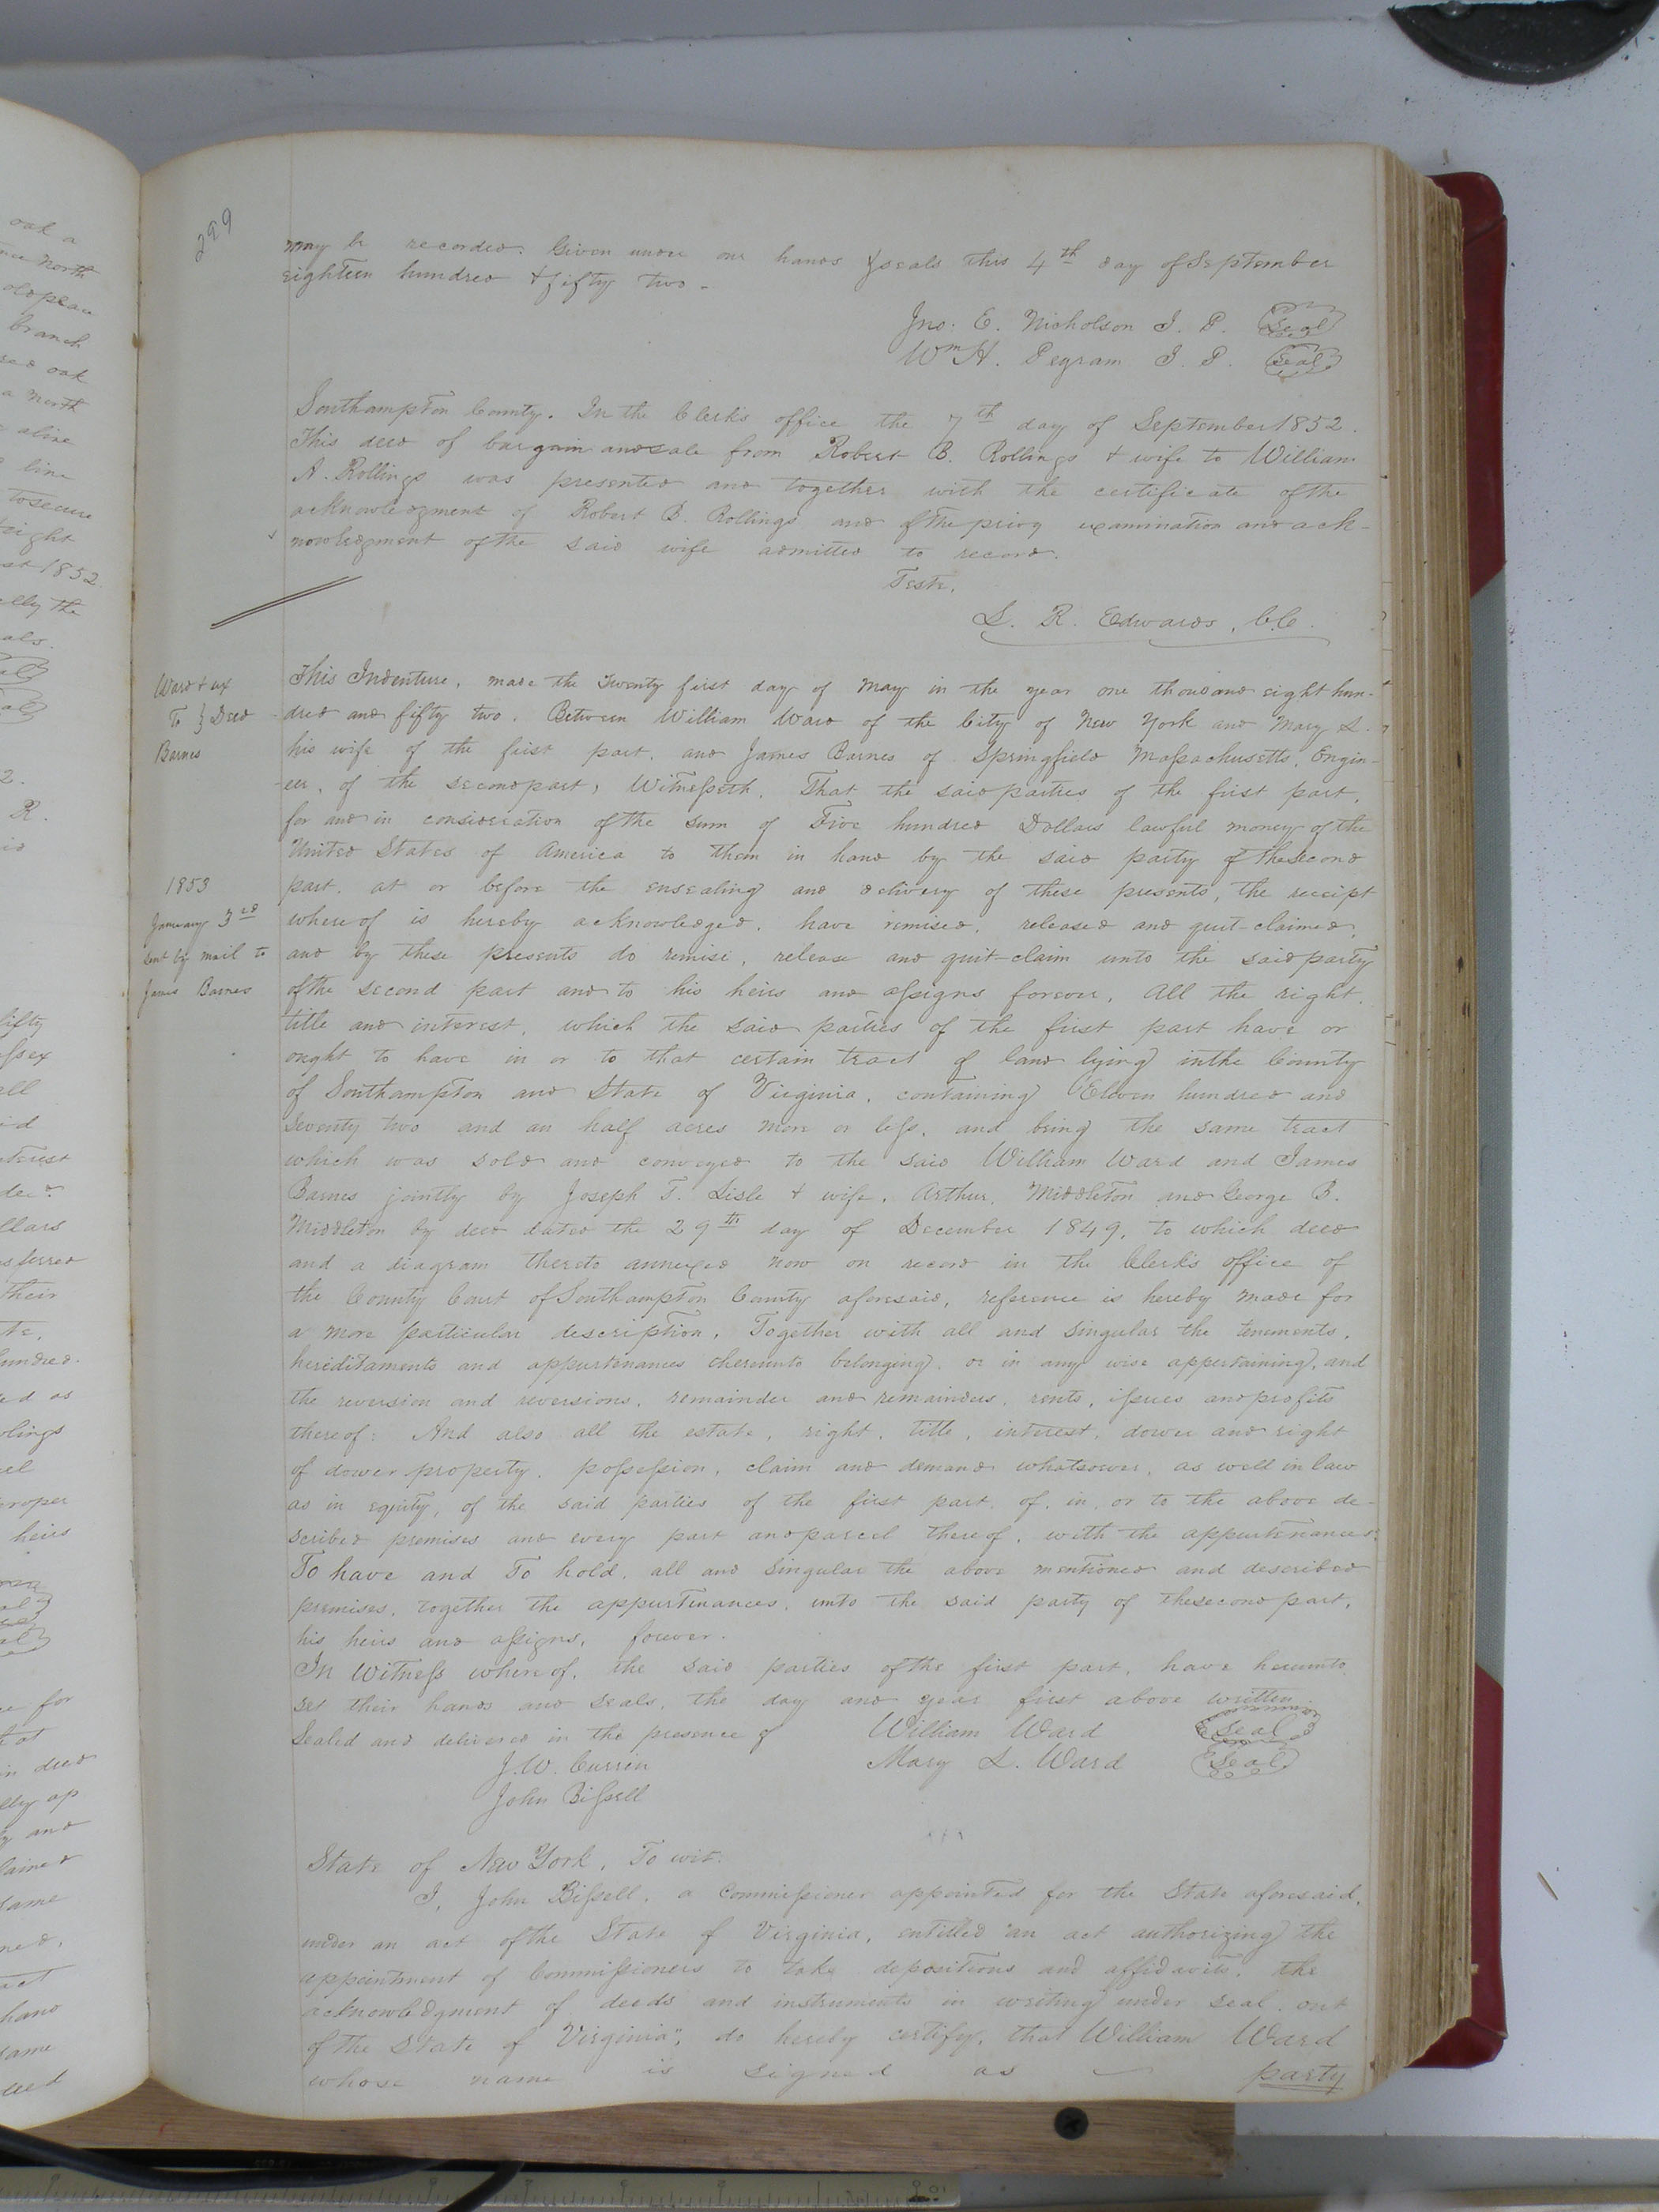 299
may be recorded. Given under our hands & seals this 4th day of September
eighteen hundred & fifty two.
Jno. E. Nicholson J. P. Seal
Wm H. Pegram J. P. Seal
Southampton County. In the Clerk's office the 7th day of September 1852.
This deed of bargain and sale from Robert B. Rollings & wife to William
A. Rollings was presented and together with the certificate of the
acknowledgment of Robert B. Rollings and of the privy examination and ack-
nowledgment of the said wife admitted to record.
Teste,
L. R. Edwards, C.C.
Ward & ux
To } Deed
Barnes
1853
January 3rd
sent by mail to
James Barnes
This Indenture, made the Twenty first day of May in the year one thousand eight hun-
dred and fifty two. Between William Ward of the City of New York and Mary L.
his wife of the first part, and James Barnes of Springfield Massachusetts, Engin-
-eer, of the second part, Witnesseth. That the said parties of the first part,
for and in consideration of the sum of Five hundred Dollars lawful money of the
United States of America to them in hand by the said party of the second
part, at or before the ensealing and delivery of these presents, the receipt
whereof is hereby acknowledged, have remised, released and quit-claimed,
and by these presents do remise, release and quit-claim unto the said party
of the second part and to his heirs and assigns forever, All the right,
title and interest, which the said parties of the first part have or
ought to have in or to that certain tract of land lying in the County
of Southampton and State of Virginia, containing Eleven hundred and
Seventy two and an half acres more or less, and being the same tract
which was sold and conveyed to the said William Ward and James
Barnes jointly by Joseph T. Lisle & wife, Arthur Middleton and George B.
Middleton by deed dated the 29th day of December 1849, to which deed
and a diagram thereto annexed now on record in the Clerk's office of
the County Court of Southampton County aforesaid, reference is hereby made for
a more particular description. Together with all and singular the tenements,
hereditaments and appurtenances thereunto belonging, or in any wise appertaining, and
the reversion and reversions, remainder and remainders, rents, issues and profits
thereof: And also all the estate, right, title, interest, dower and right
of dower property, possession, claim and demand whatsoever, as well in law
as in equity, of the said parties of the first part, of, in, or to the above de-
scribed premises and every part and parcel thereof, with the appurtenances:
To have and To hold, all and singular the above mentioned and described
premises, together the appurtenances, unto the said party of the second part,
his heirs and assigns, forever.
In Witness whereof, the said parties of the first part, have hereunto
set their hands and seals, the day and year first above written.
Sealed and delivered in the presence of William Ward Seal
J. W. Currin Mary L. Ward Seal
John Bissell
State of New York, To wit.
I, John Bissell, a Commissioner appointed for the State aforesaid,
under an act of the State of Virginia, entitled "an act authorizing the
appointment of Commissioners to take depositions and affidavits, the
acknowledgment of deeds and instruments in writing under seal, out
of the State of Virginia", do hereby certify, that William Ward
whose name is signed as party